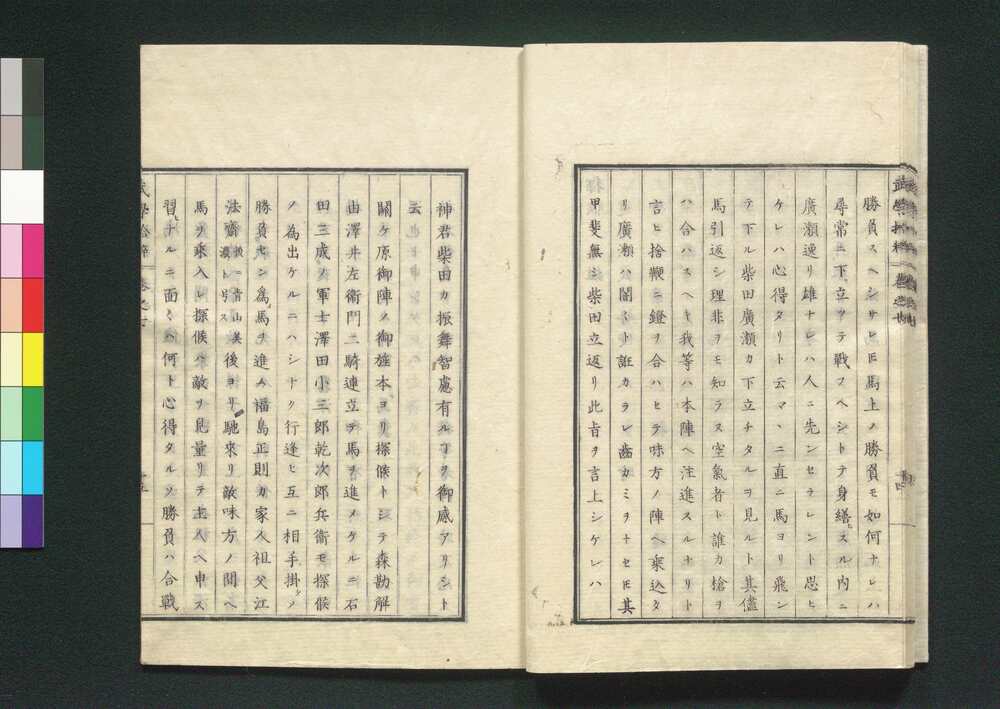 勝負スヘシサレ𪜈馬上ノ勝負モ如何ナレハ
尋常ニ下立ツテ戰フヘシトテ身繕スル内ニ
廣瀬逸リ雄ナレハ人ニ先ンセラレント思ヒ
ケレハ心得タリト云マヽニ直ニ馬ヨリ飛ン
テ下ル柴田廣瀬カ下立チタルヲ見ルト其儘
馬引返シ理非ヲモ知ラス空氣者ト誰カ槍ヲ
ハ合ハスヘキ我等ハ本陣ヘ注進スルナリト
言ヒ捨鞭ニ鐙ヲ合ハセテ味方ノ陣ヘ乘込タ
リ廣瀬ハ闇々ト誑カラレ齒カミヲナセ𪜈其
甲斐無シ柴田立返リ此旨ヲ言上シケレハ
神君柴田カ振舞智慮有ルヿヲ御感アリシト
云
關ケ原御陣ノ御旌本ヨリ探候トシテ森勘解
由澤井左衞門二騎連立テ馬ヲ進メケルニ石
田三成ノ軍士澤田小三郎乾次郎兵衞モ探候
ノ為出ケルニハシナク行逢ヒ互ニ相手掛ノ
勝負セン為馬ヲ進ム福島正則カ家人祖父江
法齋後ニ青山漢ト号ス後ヨリ馳來リ敵味方ノ間ヘ
馬ヲ乘入レ探候ハ敵ヲ見量リテ主人ヘ申ス
習ナルニ面々ハ何ト心得タルソ勝負ハ合戰